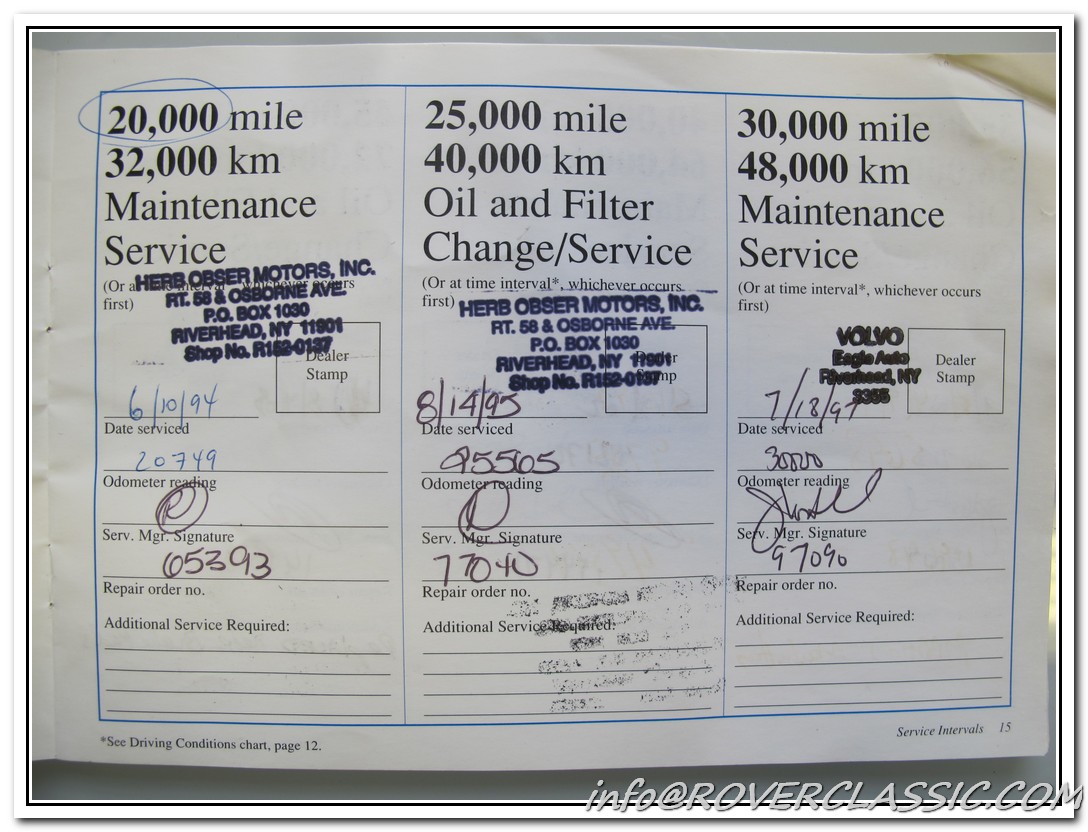 20,000 mile
32,000 km
Maintenance
Service
(Or at time interval*, whichever occurs
first)
HERB OBSER MOTORS, INC.
RT. 58 & OSBORNE AVE.
P.O. BOX 1030
RIVERHEAD, NY 11901
Shop No. R152-0137
Dealer
Stamp
6/10/94
Date serviced
20749
Odometer reading
Serv. Mgr. Signature
65393
Repair order no.
Additional Service Required:
25,000 mile
40,000 km
Oil and Filter
Change/Service
(Or at time interval*, whichever occurs
first)
HERB OBSER MOTORS, INC.
RT. 58 & OSBORNE AVE.
P.O. BOX 1030
RIVERHEAD, NY 11901
Shop No. R152-0137
Dealer
Stamp
8/14/95
Date serviced
25505
Odometer reading
Serv. Mgr. Signature
77040
Repair order no.
Additional Service Required:
30,000 mile
48,000 km
Maintenance
Service
(Or at time interval*, whichever occurs
first)
VOLVO
Eagle Auto
Riverhead, NY
3355
Dealer
Stamp
7/18/97
Date serviced
30000
Odometer reading
Serv. Mgr. Signature
97090
Repair order no.
Additional Service Required:
*See Driving Conditions chart, page 12.
Service Intervals 15
info@ROVERCLASSIC.COM